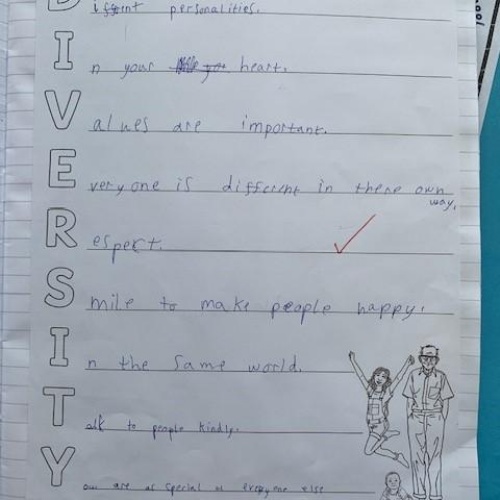 Diffrent personalities.
In your heart.
Values are important.
Everyone is different in there own
way.
Respect.
Smile to make people happy.
In the same world.
Talk to people kindly.
You are as special as everyone else